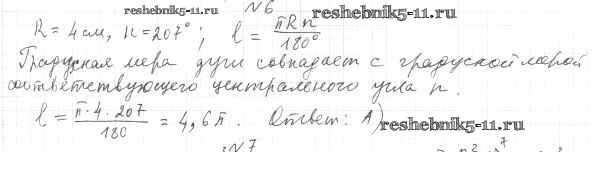 №6
reshebnik5-11.ru
R = 4 см, n = 207°; l = πRn/180°
Градусная мера дуги совпадает с градусной мерой
соответствующего центрального угла n.
l = π·4·207/180 = 4,6π. Ответ: А)
reshebnik5-11.ru
№7